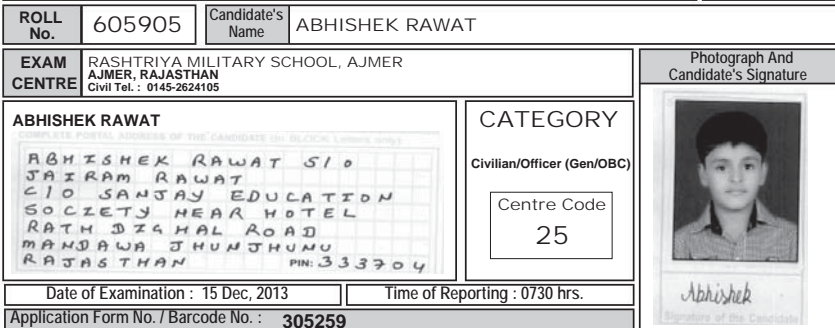 ROLL No. 605905 Candidate's Name ABHISHEK RAWAT
EXAM CENTRE RASHTRIYA MILITARY SCHOOL, AJMER
AJMER, RAJASTHAN
Civil Tel. : 0145-2624105
Photograph And
Candidate's Signature
ABHISHEK RAWAT
COMPLETE POSTAL ADDRESS OF THE CANDIDATE (In BLOCK Letters only)
ABHISHEK RAWAT S/o
JAIRAM RAWAT
C/O SANJAY EDUCATION
SOCIETY NEAR HOTEL
RATH DIGHAL ROAD
MANDAWA JHUNJHUNU
RAJASTHAN PIN: 333704
CATEGORY
Civilian/Officer (Gen/OBC)
Centre Code
25
Abhishek
Signature of the Candidate
Date of Examination : 15 Dec, 2013 Time of Reporting : 0730 hrs.
Application Form No. / Barcode No. : 305259